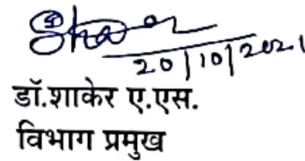 20/10/2021
डॉ.शाकेर ए.एस.
विभाग प्रमुख